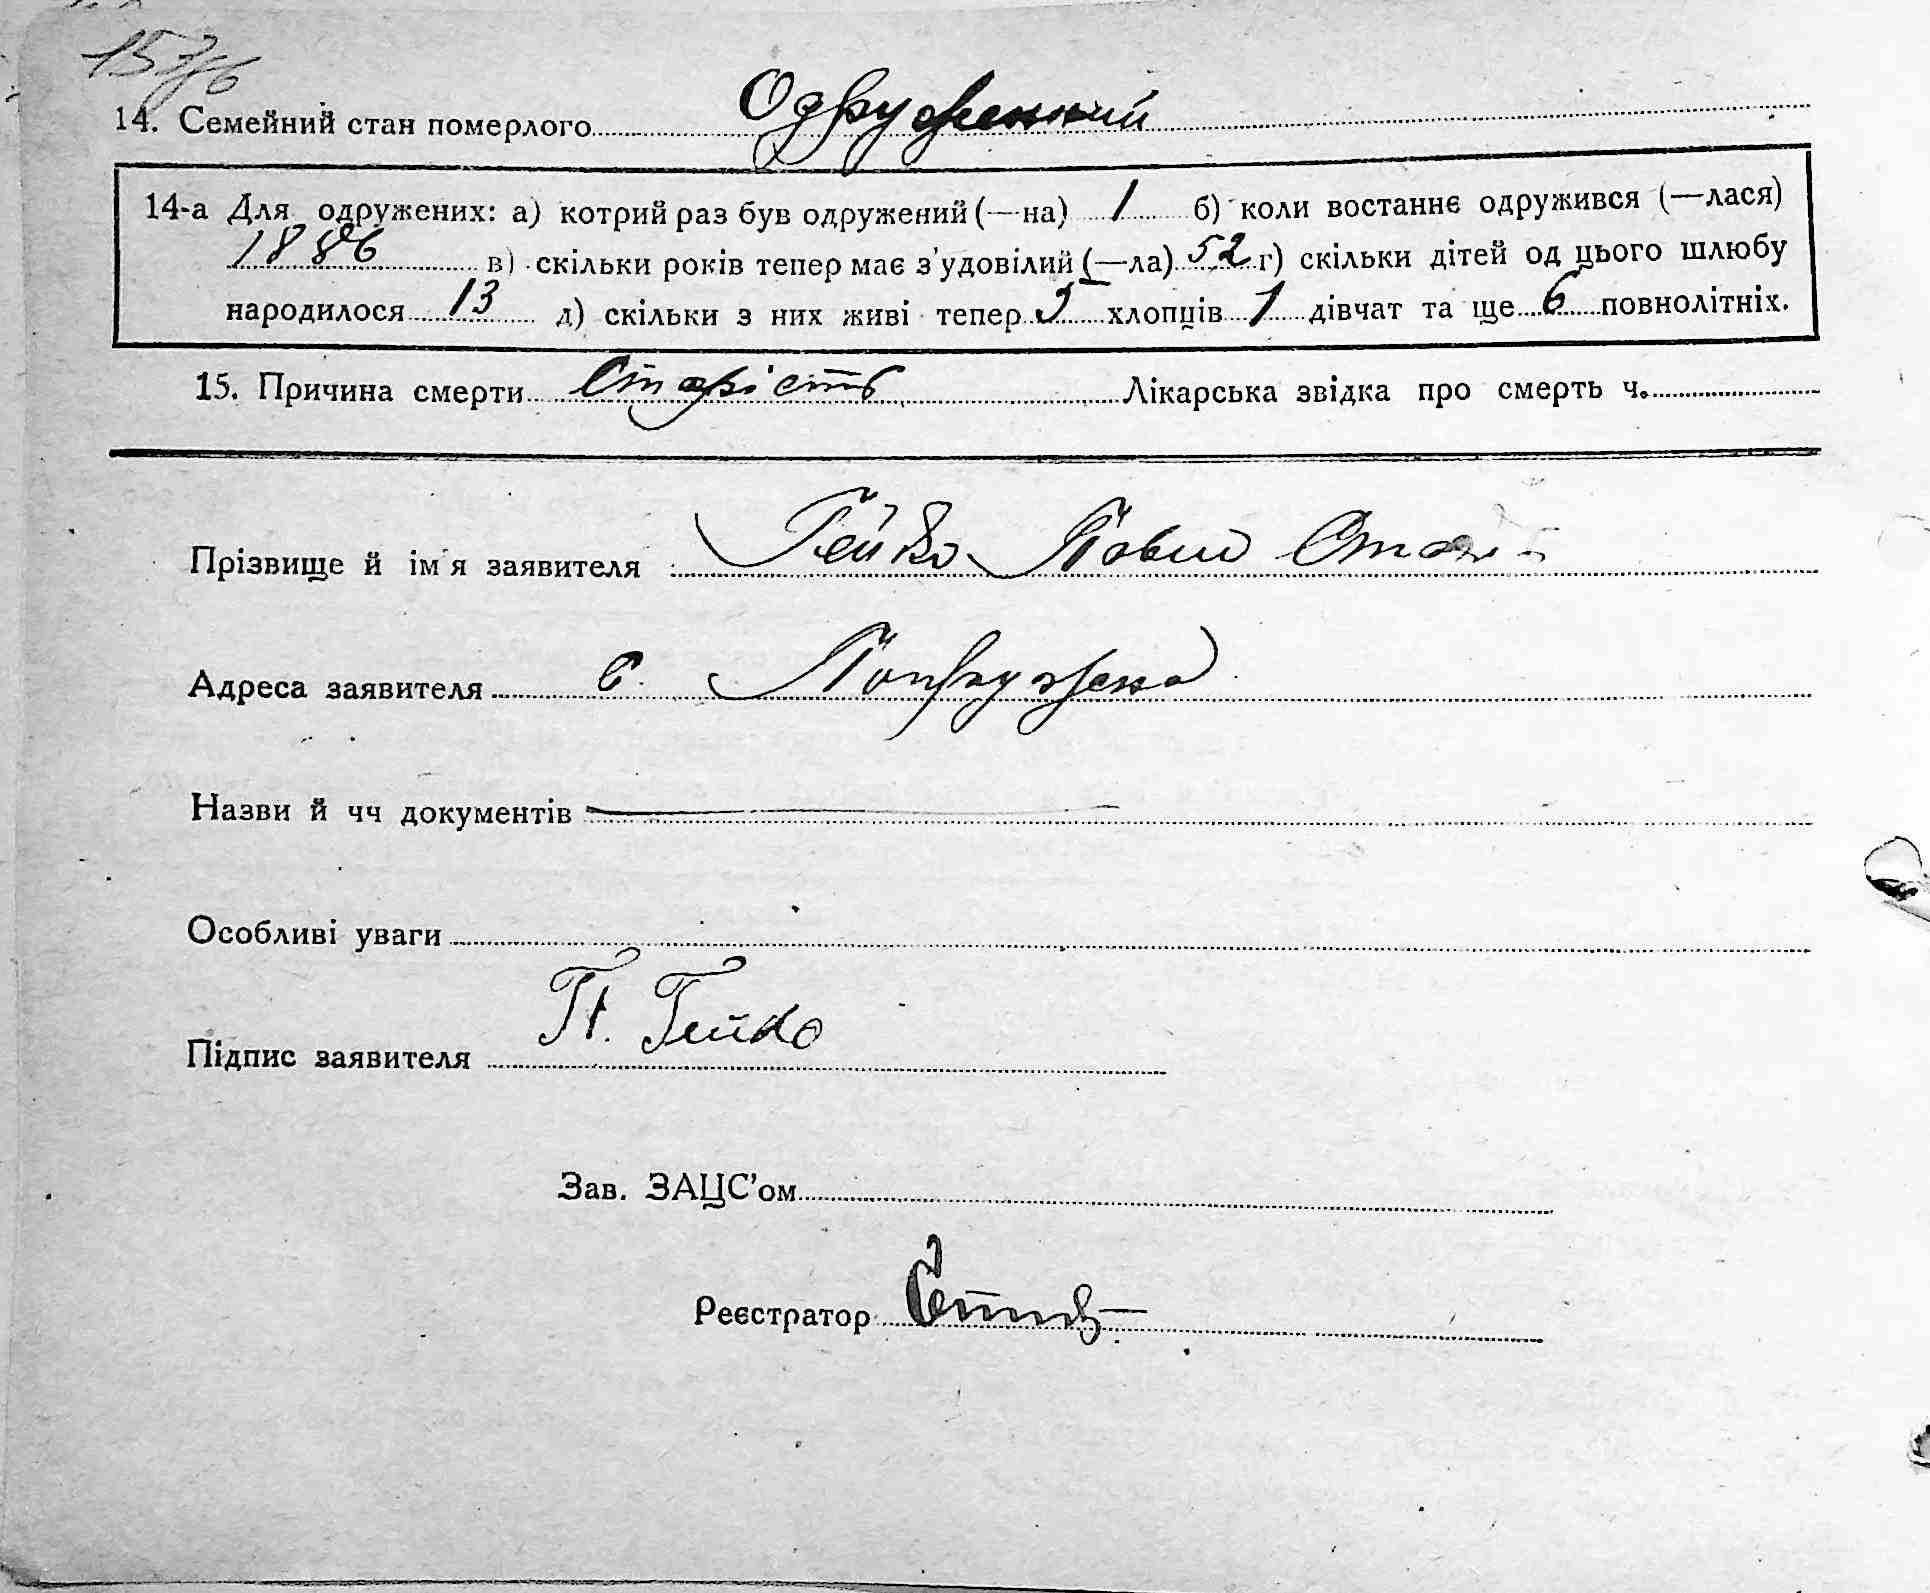 14. Семейний стан померлого Одружений
14-а Для одружених: а) котрий раз був одружений (—на) 1 б) коли востаннє одружився (—лася)
1886 в) скільки років тепер має з'удовілий (—ла) 52 г) скільки дітей од цього шлюбу
народилося 13 д) скільки з них живі тепер хлопців 1 дівчат та ще 6 повнолітніх.
15. Причина смерти Старість Лікарська звідка про смерть ч.
Прізвище й ім'я заявителя Гейко Павло
Адреса заявителя с. Попружена
Назви й чч документів
Особливі уваги
Підпис заявителя П. Гейко
Зав. ЗАЦС'ом
Реєстратор